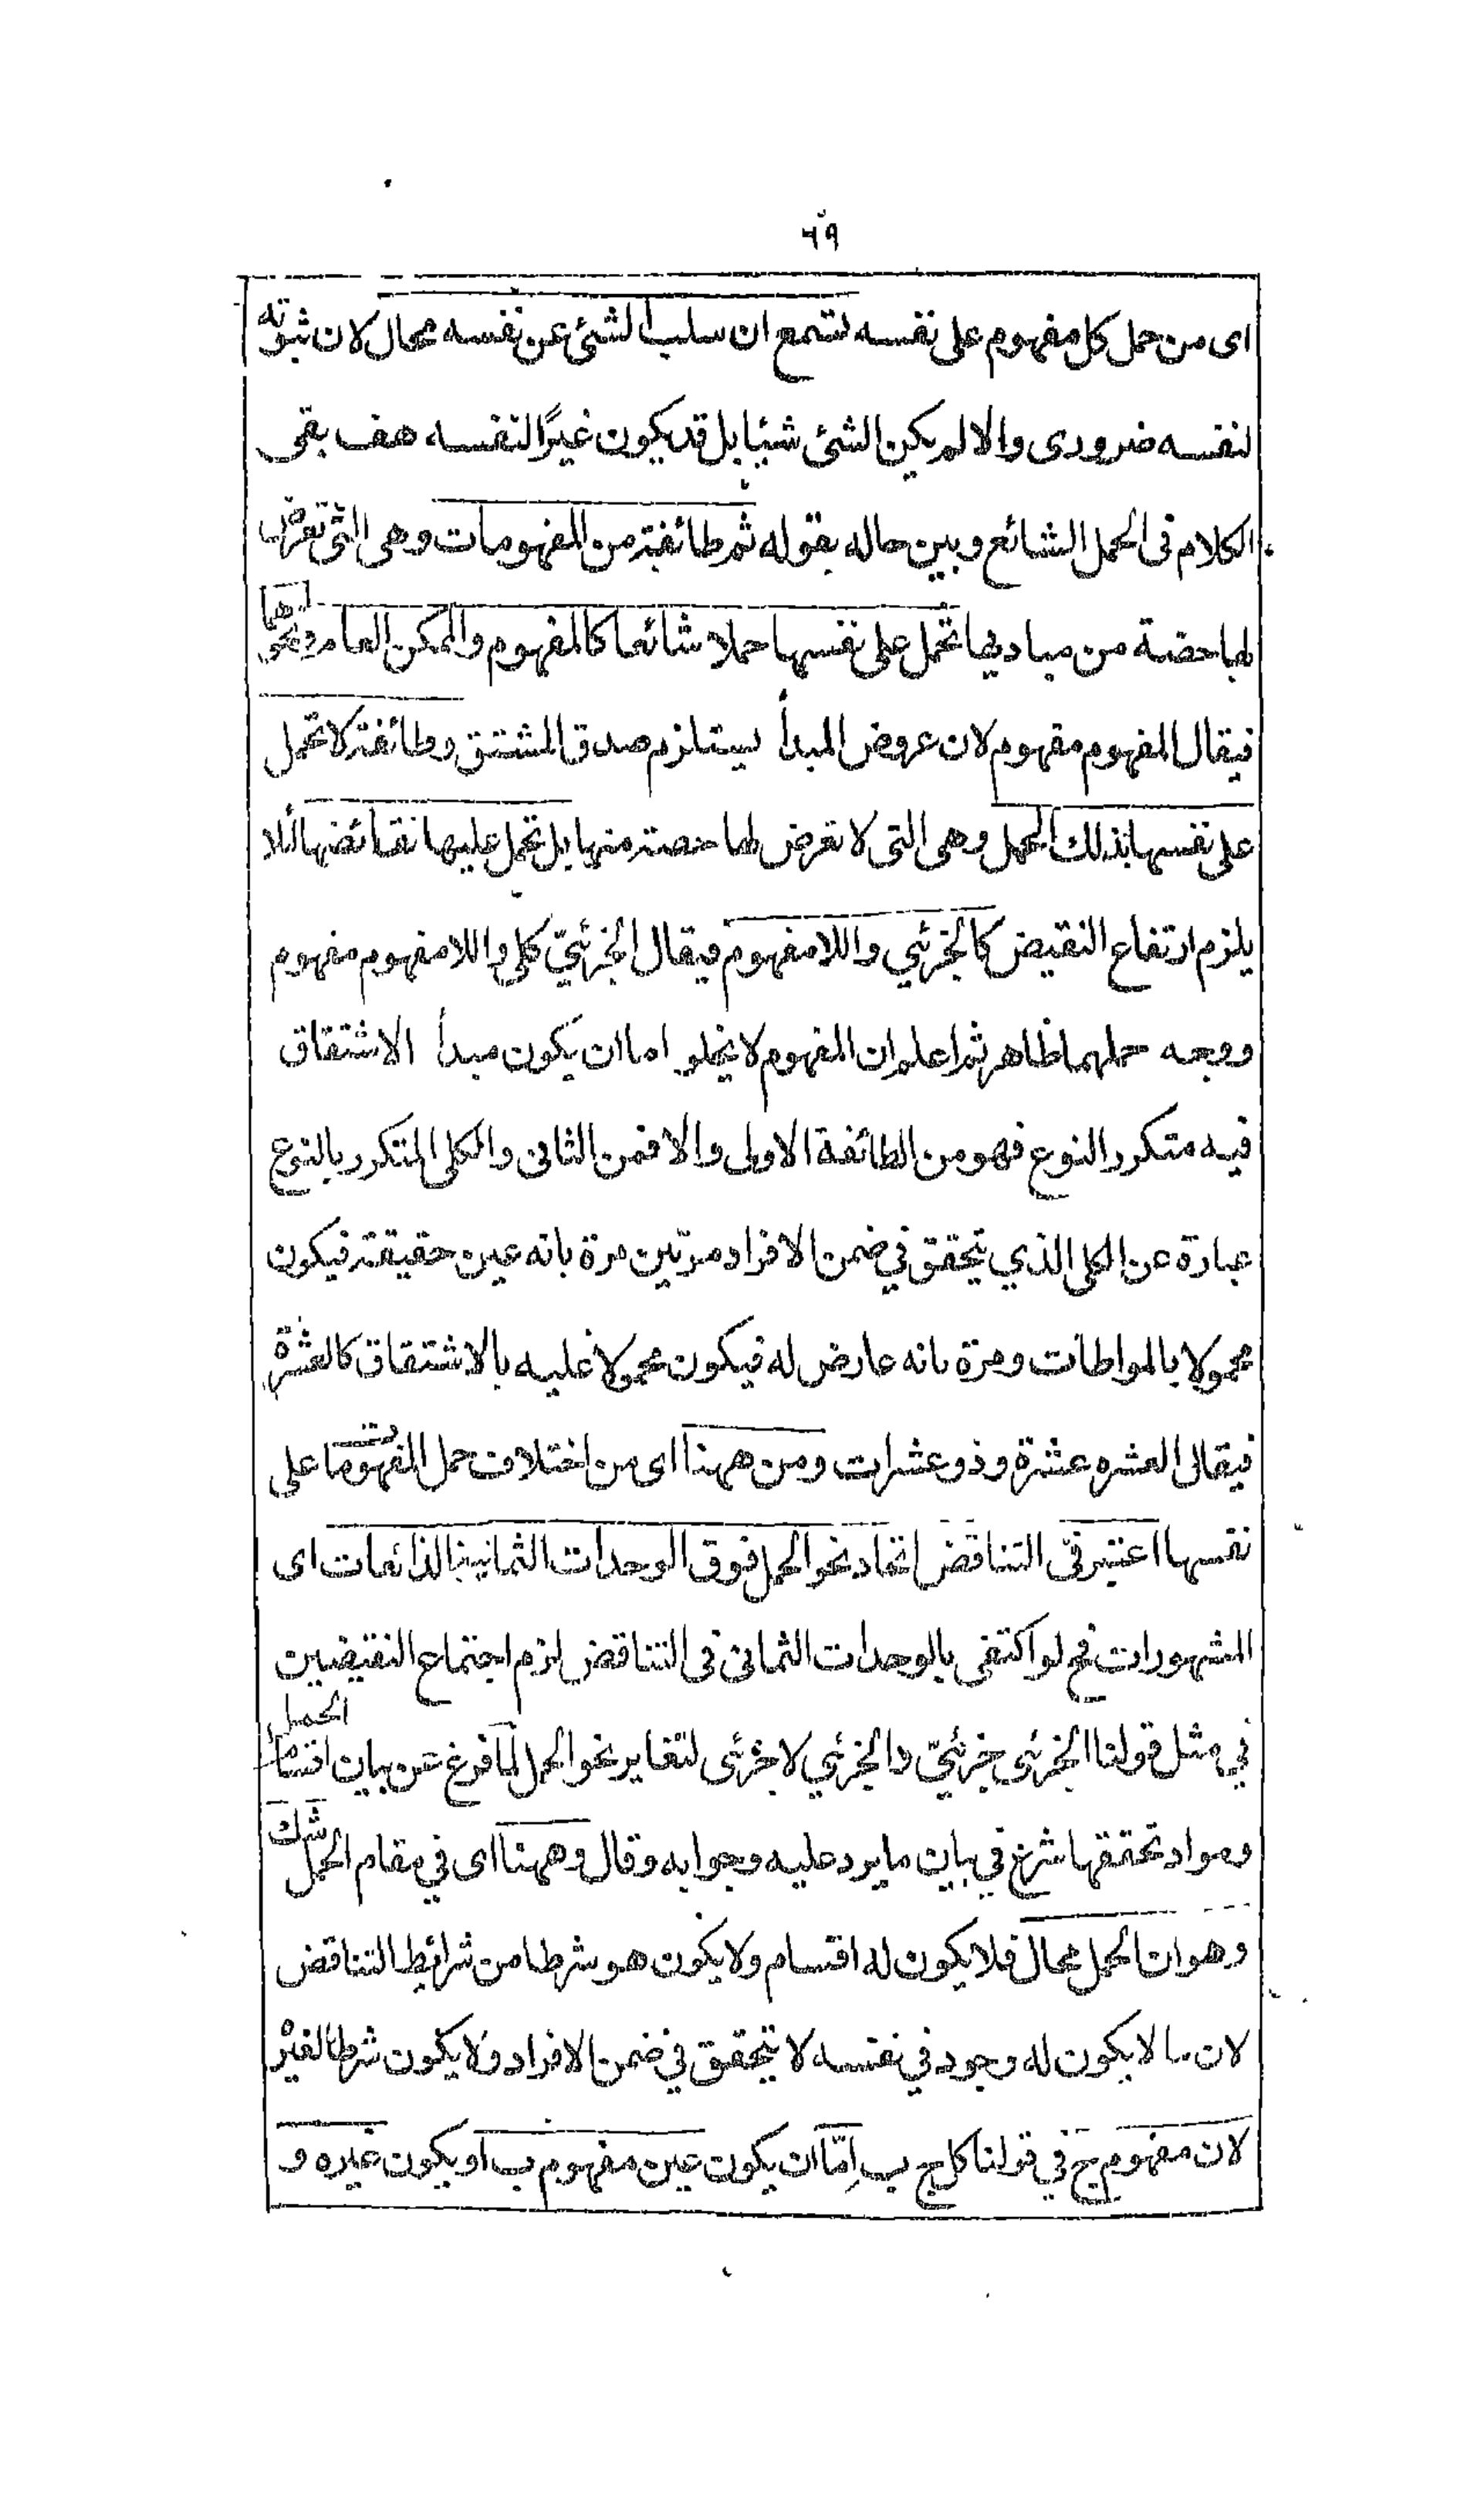 ٦٩
اى من حمل كل مفهوم على نفسه تسمع ان سلب الشئ عن نفسه محال لان ثبوته
لنفسه ضرورى والا لم يكن الشئ شيئا بل قد يكون غيرًا لنفسه هف بقى
الكلام فى الحمل الشائع وبين حاله بقوله ثم طائفة من المفهومات وهى التى تعرض
لها حصة من مباديها تحمل على نفسها حملا شائعا كالمفهوم والممكن العام ونحوهما
فيقال المفهوم مفهوم لان عروض المبدأ يستلزم صدق المشتق وطائفة لا تحمل
على نفسها بذلك الحمل وهى التى لا تعرض لها حصة منها بل تحمل عليها نقائضها لئلا
يلزم ارتفاع النقيض كالجزئي واللامفهوم فيقال الجزئيّ كلي واللامفهوم مفهوم
ووجه حملهما ظاهر ثم اعلم ان المفهوم لا يخلو اما ان يكون مبدأ الاشتقاق
فيه متكرر النوع فهو من الطائفة الاولى والا فمن الثانى والكلى المتكرر بالنوع
عبارة عن الكلى الذي يتحقق في ضمن الافراد مرتين مرة بانه عين حقيقته فيكون
محمولا بالمواطات ومرة بانه عارض له فيكون محمولا عليه بالاشتقاق كالعشرة
فيقال العشره عشرة وذو عشرات ومن ههنا اى من اختلاف حمل المفهومات على
نفسها اعتبر فى التناقض اتحاد نحو الحمل فوق الوحدات الثمانية الذائعات اى
المشهورات فح لو اكتفى بالوحدات الثمانى فى التناقض لزم اجتماع النقيضين
في مثل قولنا الجزئى جزئيّ والجزئي لا جزئى لتغاير نحو الحمل لما فرغ عن بيان اقسام الحمل
ومواد تحققها شرع في بيان ما يرد عليه وجوابه وقال وههنا اى في مقام الحمل شك
وهو ان الحمل محال فلا يكون له اقسام ولا يكون هو شرطا من شرائط التناقض
لان ما لا يكون له وجود في نفسه لا يتحقق في ضمن الافراد ولا يكون شرطا لغيره
لان مفهوم ج في قولنا كل ج ب اِمّا ان يكون عين مفهوم ب او يكون غيره و